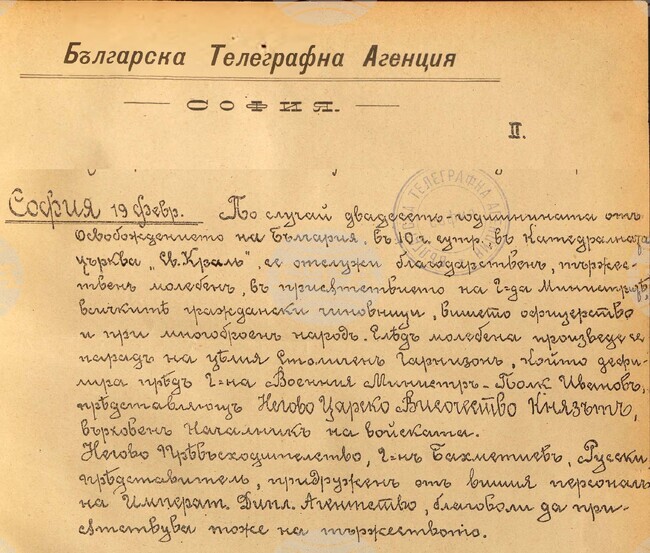 Българска Телеграфна Агенция
СОФИЯ.
II.
ТЕЛЕГРАФНА
София 19 февр. По случай двадесеть-годишнината отъ
Освобождението на България, въ 10 ч. сутр. въ Катедралната
църква „Св. Кралъ", се отслужи благодарственъ, тържес-
твенъ молебенъ, въ присѫтствието на г-да Министритѣ,
всичкитѣ граждански чиновници, висшето офицерство
и при многоброенъ народъ. Слѣдъ молебена произведе се
парадъ на цѣлия Столиченъ Гарнизонъ, който дефи-
лира прѣдъ г-на Военния Министръ - Полк. Ивановъ,
прѣдставляющъ Негово Царско Височество Князътъ,
върховенъ Началникъ на войската.
Негово Прѣвъсходителство, г-нъ Бахметиевъ, Русски
прѣдставитель, придруженъ отъ висшия персоналъ
на Императ. Дипл. Агентство, благоволи да при-
сѫтствува тоже на тържеството.